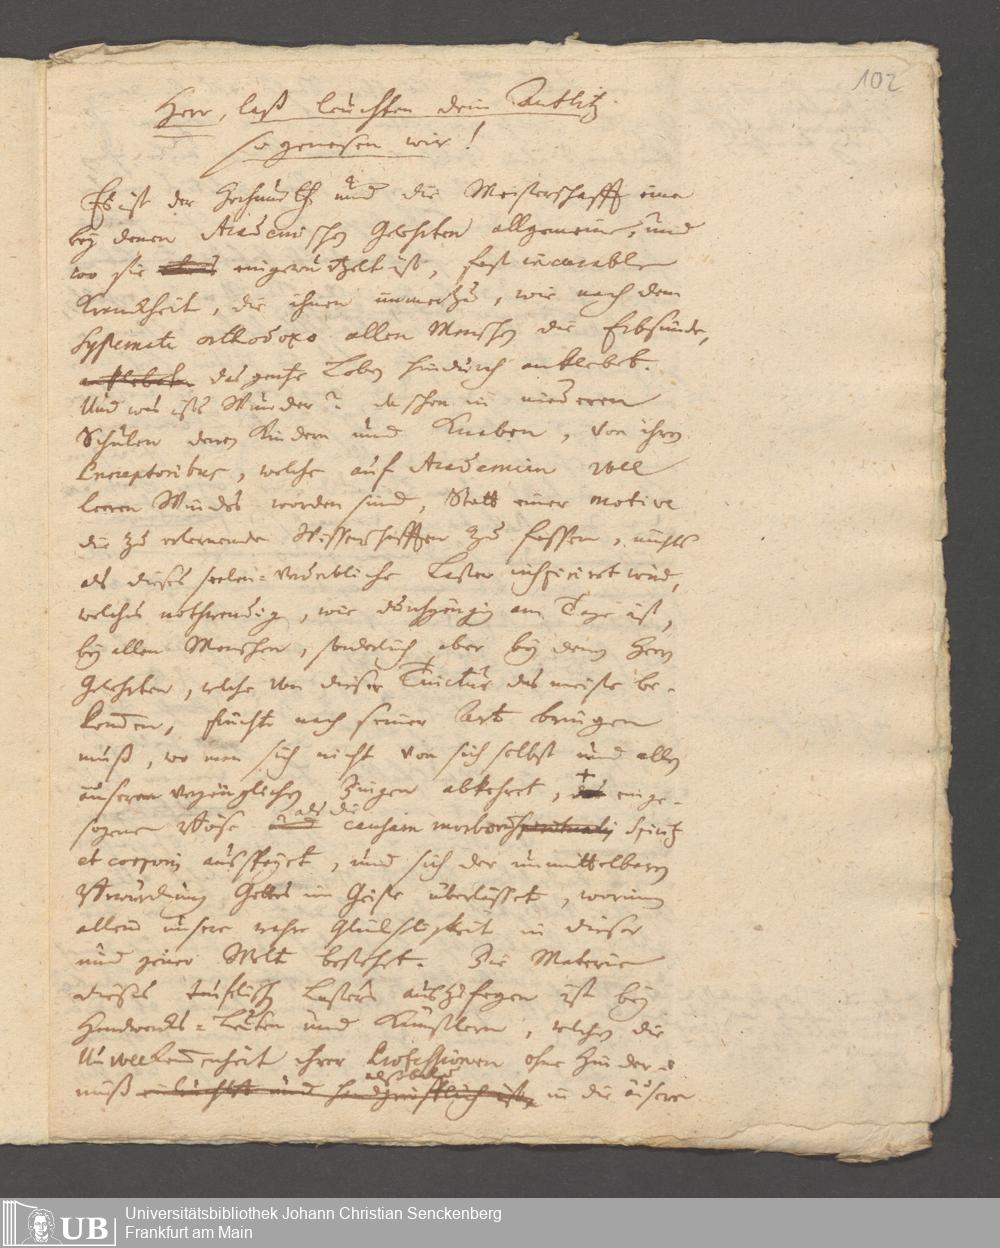 102
Herr, laß leuchten dein Antlitz
so genesen wir!
Es ist der Hochmuth und die Meisterschafft eine
bey denen Academischen Gelehrten allgemeine, und
wo sie eingewurtzelt ist, fast incurable
Kranckheit, die ihnen immerzu, wie nach dem
Systemate orthodoxo allen Menschen die Erbsünde,
das gantze Leben hindurch anklebet.
Und was ists Wunder? da schon in niederen
Schulen denen Kindern und Knaben, von ihren
Praeceptoribus, welche auf Academien voll
leeren Windes worden sind, Statt einer motive
die zu erlernende Wissenschafften zu fassen, nichts
als dieses seelen-verderbliche Laster inspiriret wird,
welches nothwendig, wie durchgängig am Tage ist,
bey allen Menschen, sonderlich aber bey denen Herren
Gelehrten, welche von dieser Tinctur das meiste be-
kommen, früchte nach seiner Art bringen
muß, wo man sich nicht von sich selbst und allen
äuseren vergänglichen Dingen abkehret, das einge-
sogene Böse als die causam morborum Spiritus
et corporis ausspeyet, und sich der unmittelbaren
Würckung Gottes im Geiste überlässet, worinn
allein unsere wahre Glückseligkeit in dieser
und jener Welt bestehet. Die Materie
dieses teuflischen Lasters auszufegen ist bey
Handwercks-Leuten und Künstlern, welchen die
Unvollkommenheit ihrer Professionen ohne hinder-
muß alsobald in die äusere
UB
Universitätsbibliothek Johann Christian Senckenberg
Frankfurt am Main